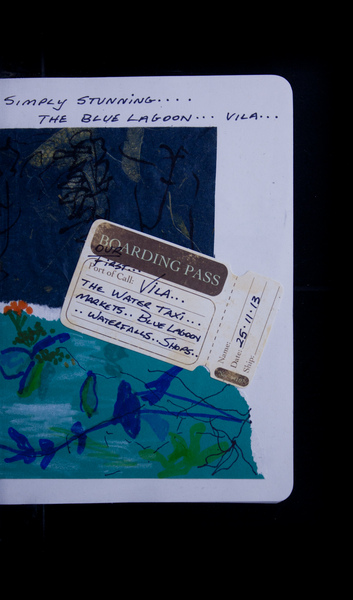 SIMPLY STUNNING....
THE BLUE LAGOON... VILA...
BOARDING PASS
OUR
FIRST...
Port of Call:
VILA...
THE WATER TAXI...
MARKETS.. BLUE LAGOON
.. WATERFALLS.. SHOPS..
Name:
Date: 25.11.13
Ship: